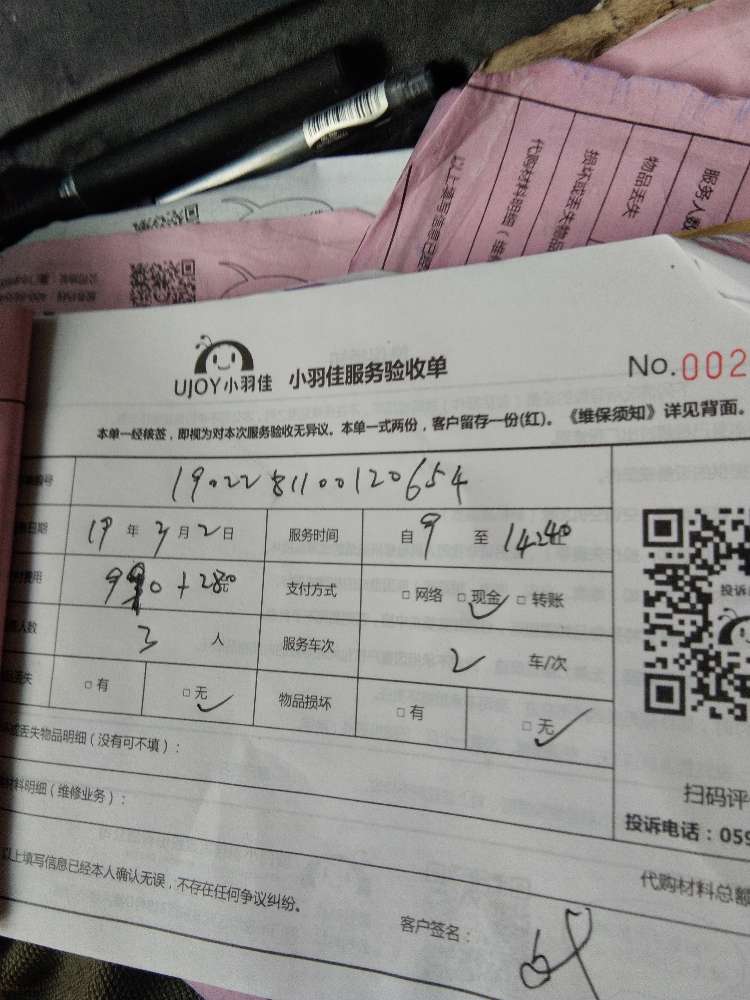 服务人数
物品丢失
损坏或丢失物品
代购材料明细（维
UJOY小羽佳 小羽佳服务验收单 No.002
本单一经核签，即视为对本次服务验收无异议。本单一式两份，客户留存一份(红)。《维保须知》详见背面。
号 190228110012 0654
日期 19 年 3 月 2 日 服务时间 自 9 至 14:40
费用 990+280 支付方式 □ 网络 □ 现金 □ 转账
人数 3 人 服务车次 2 车/次
丢失 □ 有 □ 无 物品损坏 □ 有 □ 无
或丢失物品明细（没有可不填）：
材料明细（维修业务）：
扫码评
投诉电话：059
代购材料总额
以上填写信息已经本人确认无误，不存在任何争议纠纷。
客户签名：